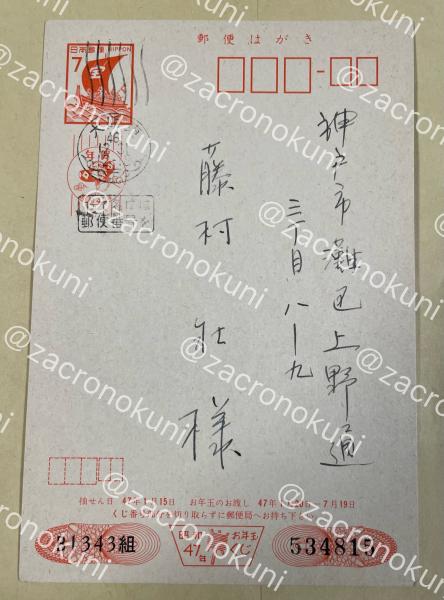 郵便はがき
日本郵便 NIPPON
7
46
年賀
郵便番号を
神戸市灘区上野通
三丁目八ー九
藤村 壮 様
抽せん日 47年1月15日 お年玉のお渡し 47年1月20日-7月19日
くじ番号部分を切り取らずに郵便局へお持ち下さい
31343組
昭和47年
お年玉くじ
534815
@zacronokuni
@zacronokuni
@zacronokuni
@zacronokuni
@zacronokuni
@zacronokuni
@zacronokuni
@zacronokuni